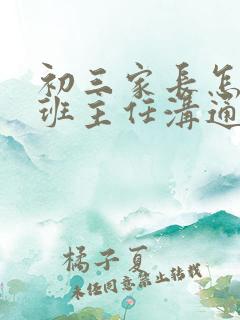 初三家長怎
班主任溝通
橘子夏
未任同意禁止转载